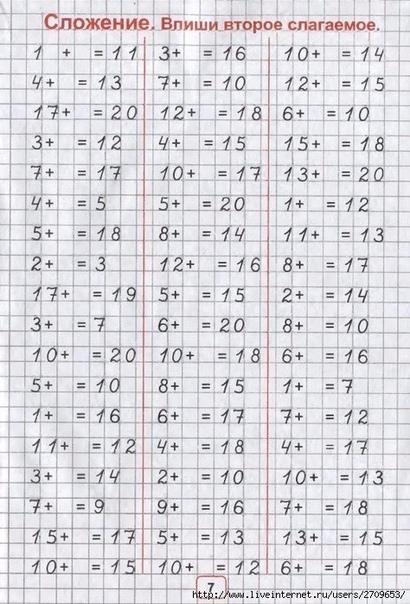 Сложение. Впиши второе слагаемое.
1 + = 11 3+ = 16 10+ = 14
4+ = 13 7+ = 10 12+ = 15
17+ = 20 12+ = 18 6+ = 10
3+ = 12 4+ = 15 15+ = 18
7+ = 17 10+ = 17 13+ = 20
4+ = 5 5+ = 20 1+ = 12
5+ = 18 8+ = 14 11+ = 13
2+ = 3 12+ = 16 8+ = 17
17+ = 19 5+ = 15 2+ = 14
3+ = 7 6+ = 20 8+ = 10
10+ = 20 10+ = 18 6+ = 16
5+ = 10 8+ = 15 1+ = 7
1+ = 16 6+ = 17 7+ = 12
11+ = 12 4+ = 18 4+ = 17
3+ = 14 2+ = 10 10+ = 13
7+ = 9 9+ = 16 7+ = 18
15+ = 17 5+ = 13 13+ = 15
10+ = 15 10+ = 12 6+ = 18
7
http://www.liveinternet.ru/users/2709653/